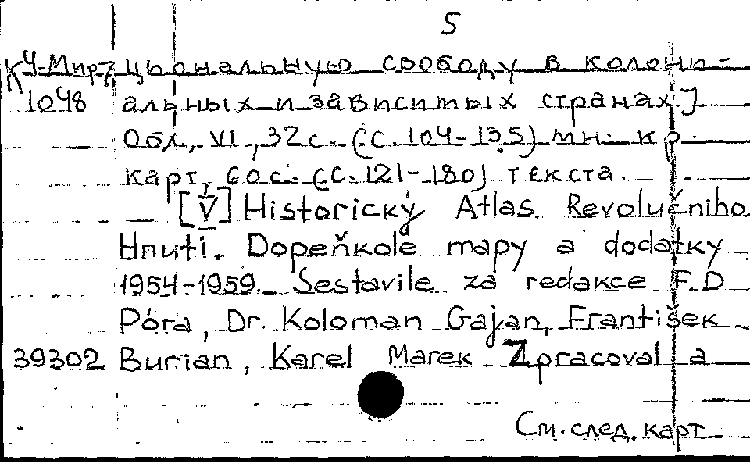 5
К4-Мир-7 циональную свободу в колони-
1048 альных и зависимых странах]
Обл., VI, 32 с. (с. 104-135) мн. кр
карт, 60 с. (с. 121-180) текста.
[V] Historický Atlas Revolučniho
Hnuti. Dopeňkole mapy a dodatky
1954-1959. Sestavile za redakce F.D
Póra, Dr. Koloman Gajan, František
39302 Burian, Karel Marek Zpracoval a
См. след. карт